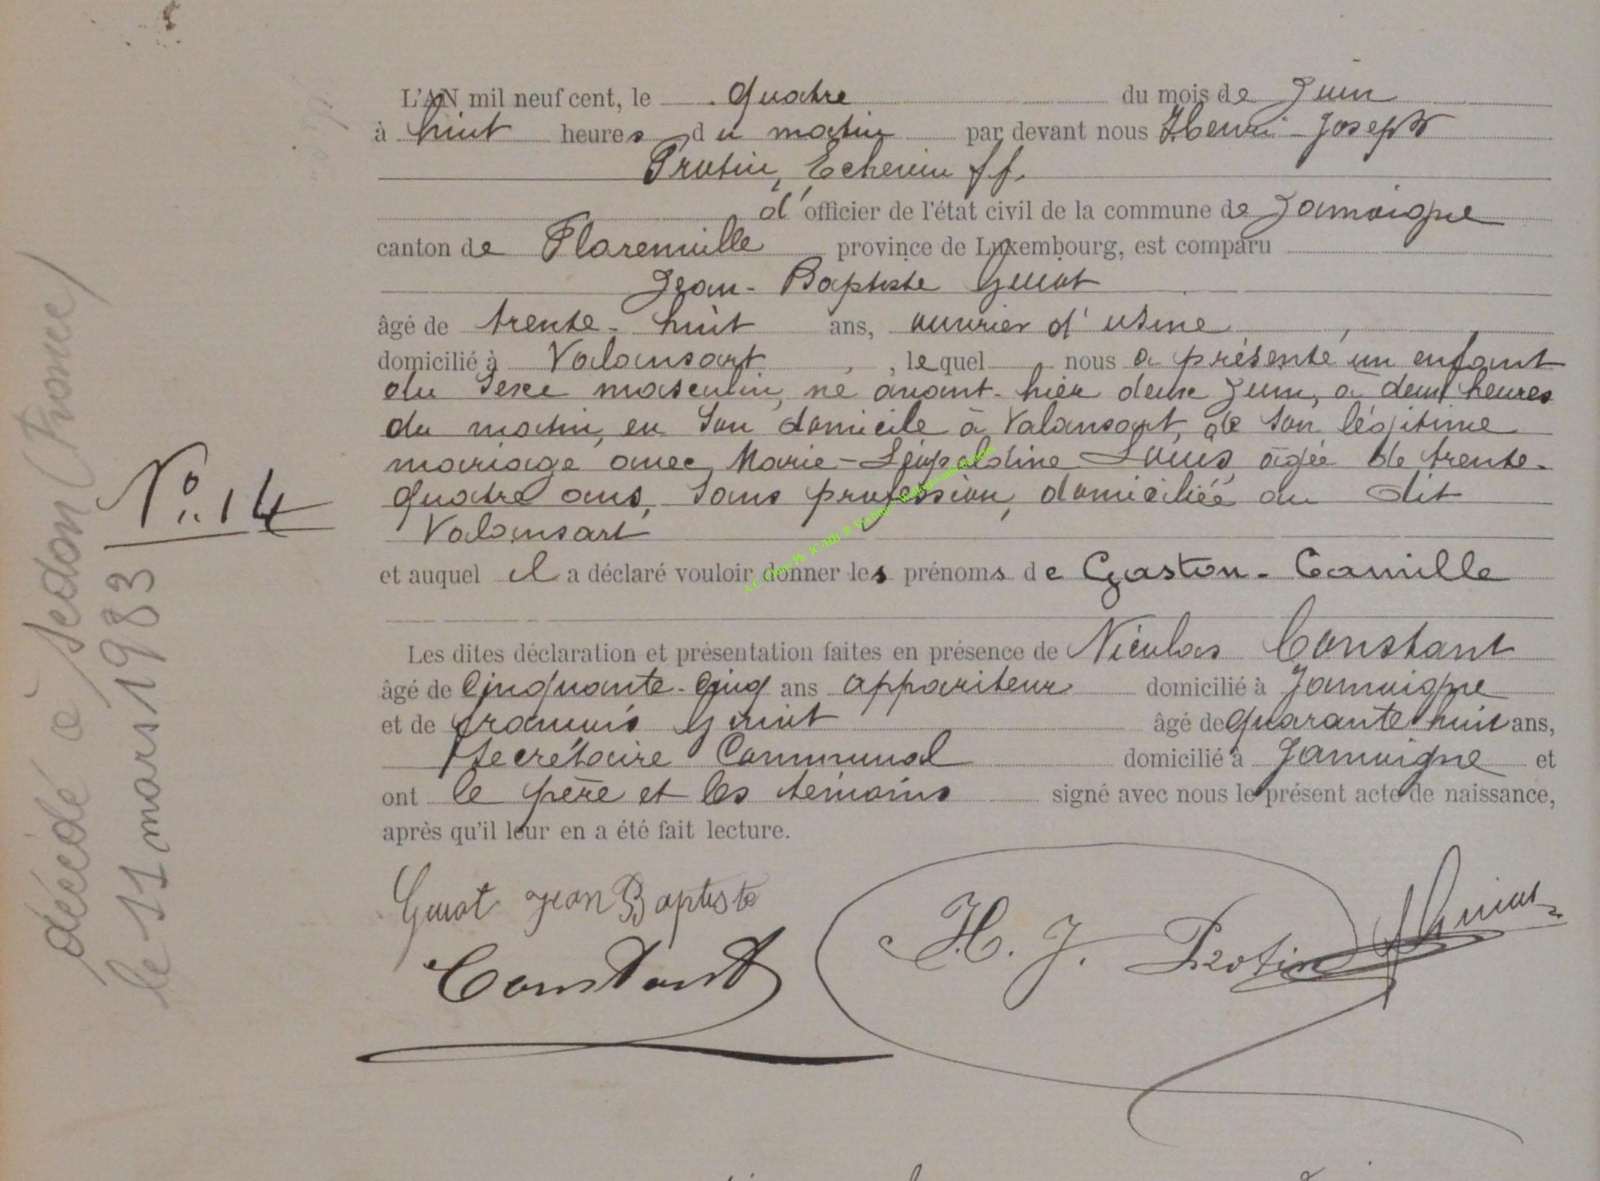 L'AN mil neuf cent, le quatre du mois de Juin
à huit heures du matin par devant nous Henri-Joseph
Protin, Echevin ff.
d'officier de l'état civil de la commune de Jamoigne
canton de Florenville province de Luxembourg, est comparu
Jean-Baptiste Guiot
âgé de trente-huit ans, ouvrier d'usine
domicilié à Valansart, lequel nous a présenté un enfant
du sexe masculin, né avant-hier deux Juin, à deux heures
du matin, en son domicile à Valansart, de son légitime
mariage avec Marie-Léopoldine âgée de trente-
quatre ans, sans profession, domiciliée au dit
Valansart
et auquel il a déclaré vouloir donner les prénoms de Gaston-Camille
Les dites déclaration et présentation faites en présence de Nicolas Constant
âgé de cinquante-cinq ans appariteur domicilié à Jamoigne
et de François Guiot âgé de quarante huit ans,
Secrétaire Communal domicilié à Jamoigne et
ont le père et les témoins signé avec nous le présent acte de naissance,
après qu'il leur en a été fait lecture.
Guiot Jean Baptiste
Constant
H. J. Protin
Nº 14
décédé à Sedan (France)
le 11 mars 1983